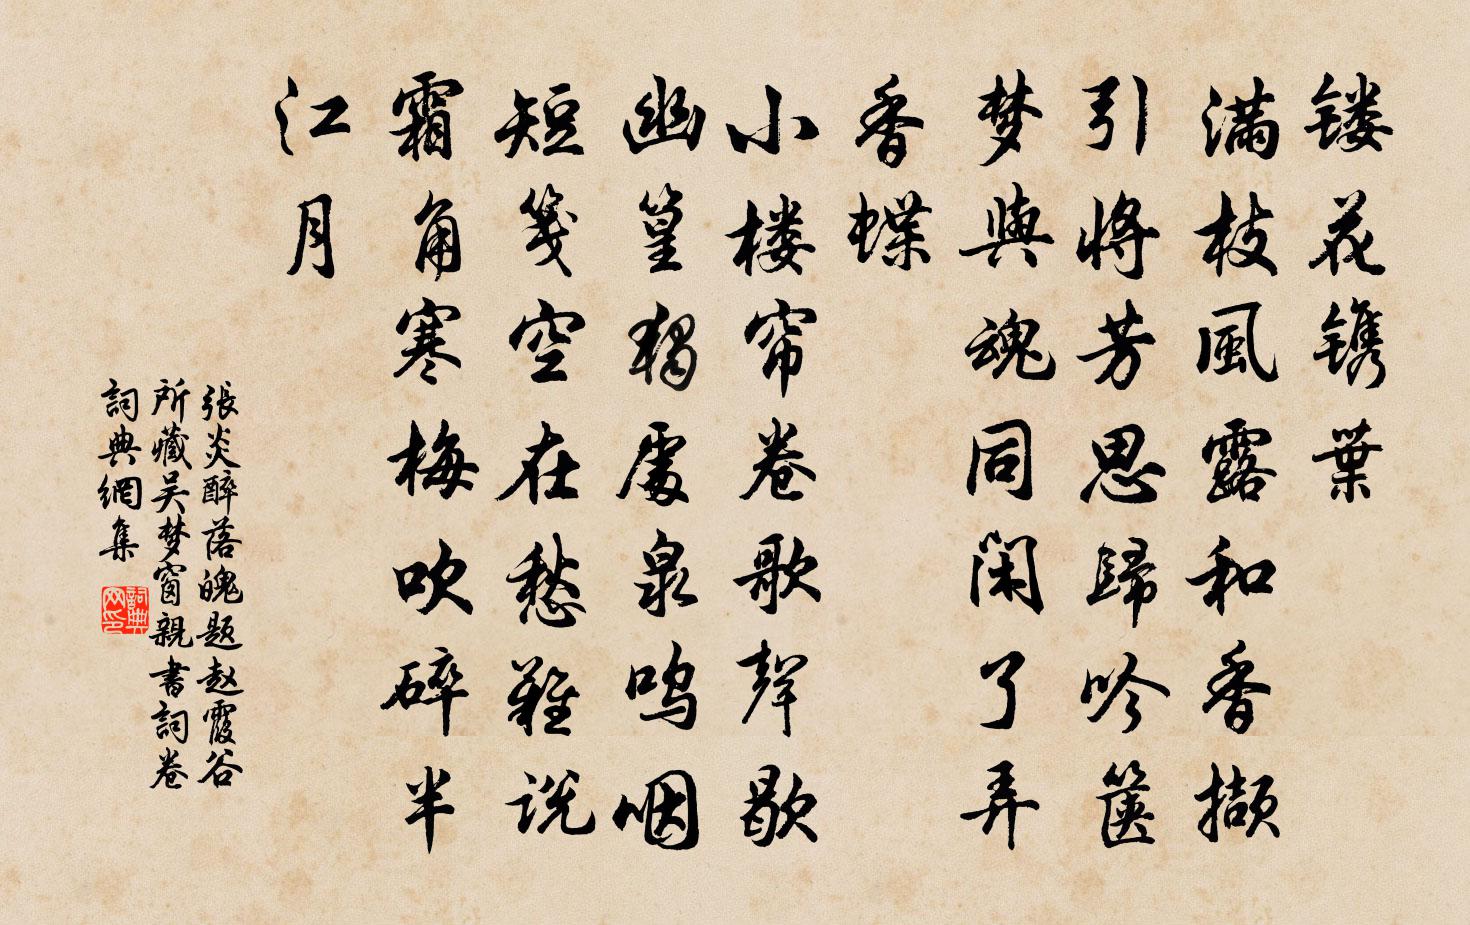 镂花镌葉
满枝風露和香撷
引将芳思歸吟箧
梦與魂同闲了弄
香蝶
小楼帘卷歌聲歇
幽篁獨處泉鸣咽
短笺空在愁難说
霜角寒梅吹碎半
江月
張炎醉落魄题赵霞谷
所藏吴梦窗親書詞卷
詞典網集
詞典网印